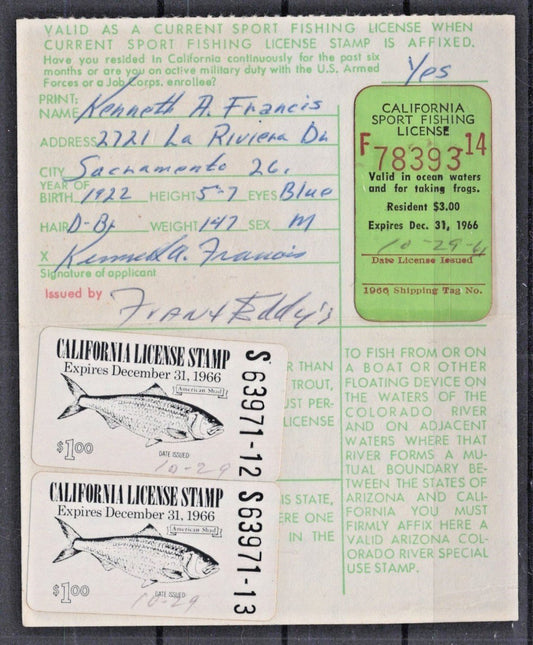 VALID AS A CURRENT SPORT FISHING LICENSE WHEN
CURRENT SPORT FISHING LICENSE STAMP IS AFFIXED.
Have you resided in California continuously for the past six
months or are you on active military duty with the U.S. Armed
Forces or a Job Corps. enrollee? Yes
PRINT:
NAME Kenneth A. Francis
ADDRESS 2721 La Riviera Dr
CITY Sacramento 26.
YEAR OF
BIRTH 1922 HEIGHT 5-7 EYES Blue
HAIR D-Br WEIGHT 147 SEX M
X Kenneth A. Francis
Signature of applicant
Issued by Frank Eddy's
CALIFORNIA
SPORT FISHING
LICENSE
F 78393-14
Valid in ocean waters
and for taking frogs.
Resident $3.00
Expires Dec. 31, 1966
10-29-6
Date License Issued
1966 Shipping Tag No.
CALIFORNIA LICENSE STAMP
Expires December 31, 1966
American Shad
$1.00
DATE ISSUED
10-29
S 63971-12
CALIFORNIA LICENSE STAMP
Expires December 31, 1966
American Shad
$1.00
DATE ISSUED
10-29
S 63971-13
ER THAN
TROUT,
ST PER-
LICENSE
IS STATE,
ERE ONE
IN THE
TO FISH FROM OR ON
A BOAT OR OTHER
FLOATING DEVICE ON
THE WATERS OF THE
COLORADO RIVER
AND ON ADJACENT
WATERS WHERE THAT
RIVER FORMS A MU-
TUAL BOUNDARY BE-
TWEEN THE STATES OF
ARIZONA AND CALI-
FORNIA YOU MUST
FIRMLY AFFIX HERE A
VALID ARIZONA COL-
ORADO RIVER SPECIAL
USE STAMP.